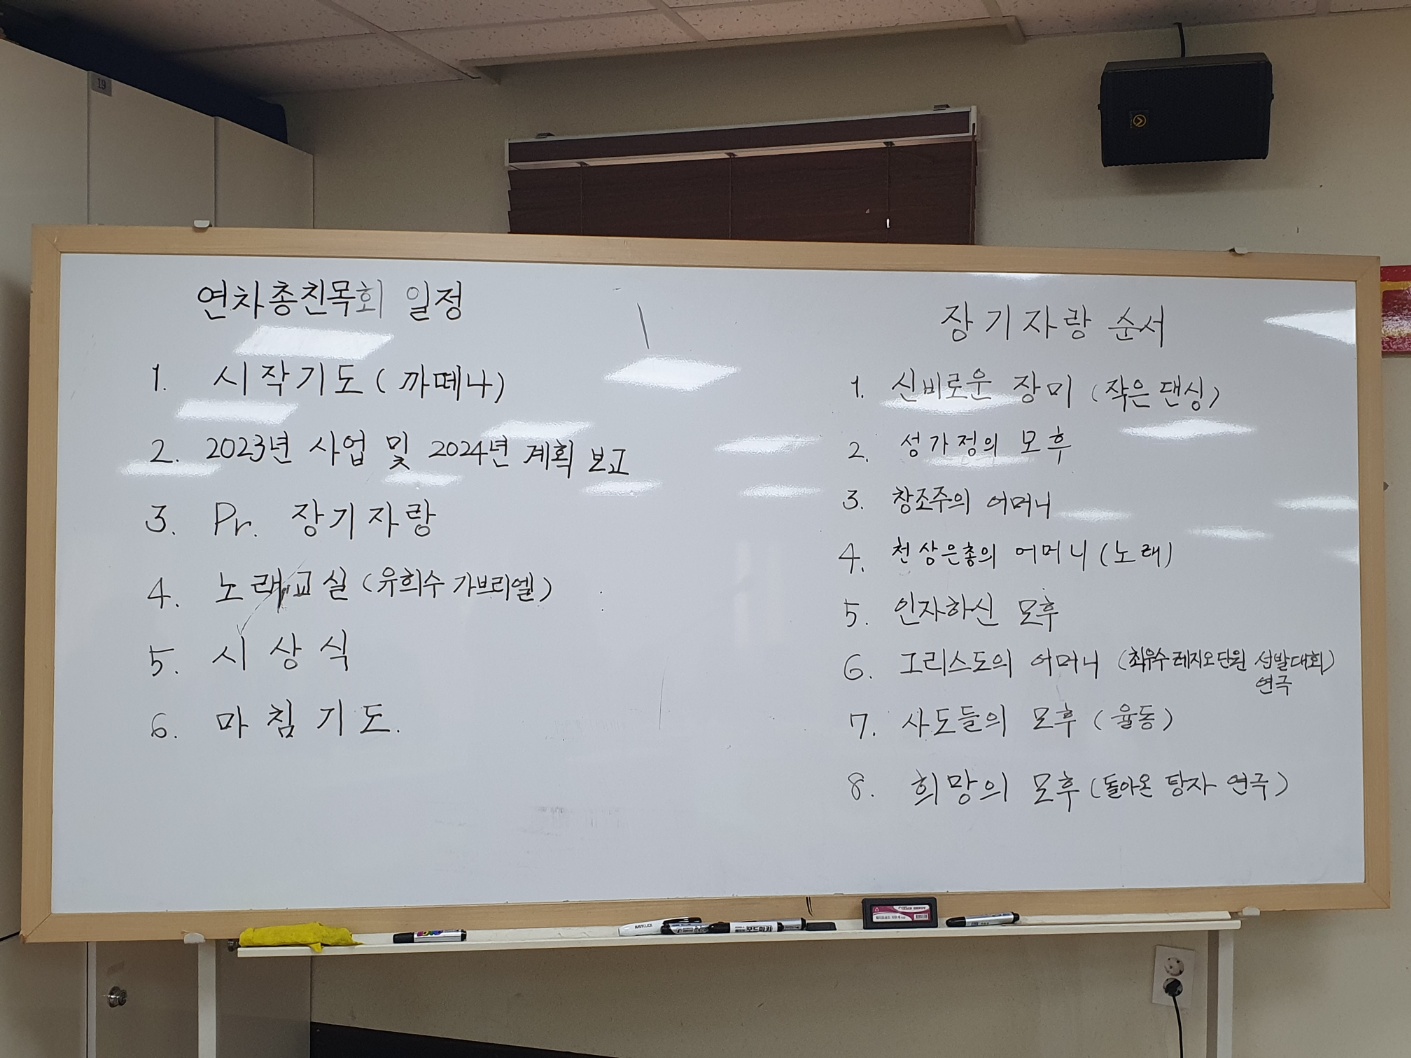 연차총친목회 일정
1. 시작기도 (까떼나)
2. 2023년 사업 및 2024년 계획 보고
3. Pr. 장기자랑
4. 노래교실 (유희수 가브리엘)
5. 시상식
6. 마침기도.
장기자랑 순서
1. 신비로운 장미 (작은 댄싱)
2. 성가정의 모후
3. 창조주의 어머니
4. 천상은총의 어머니 (노래)
5. 인자하신 모후
6. 그리스도의 어머니 (최우수 레지오단원 선발대회)
연극
7. 사도들의 모후 (율동)
8. 희망의 모후 (돌아온 탕자 연극)
19
보드마카